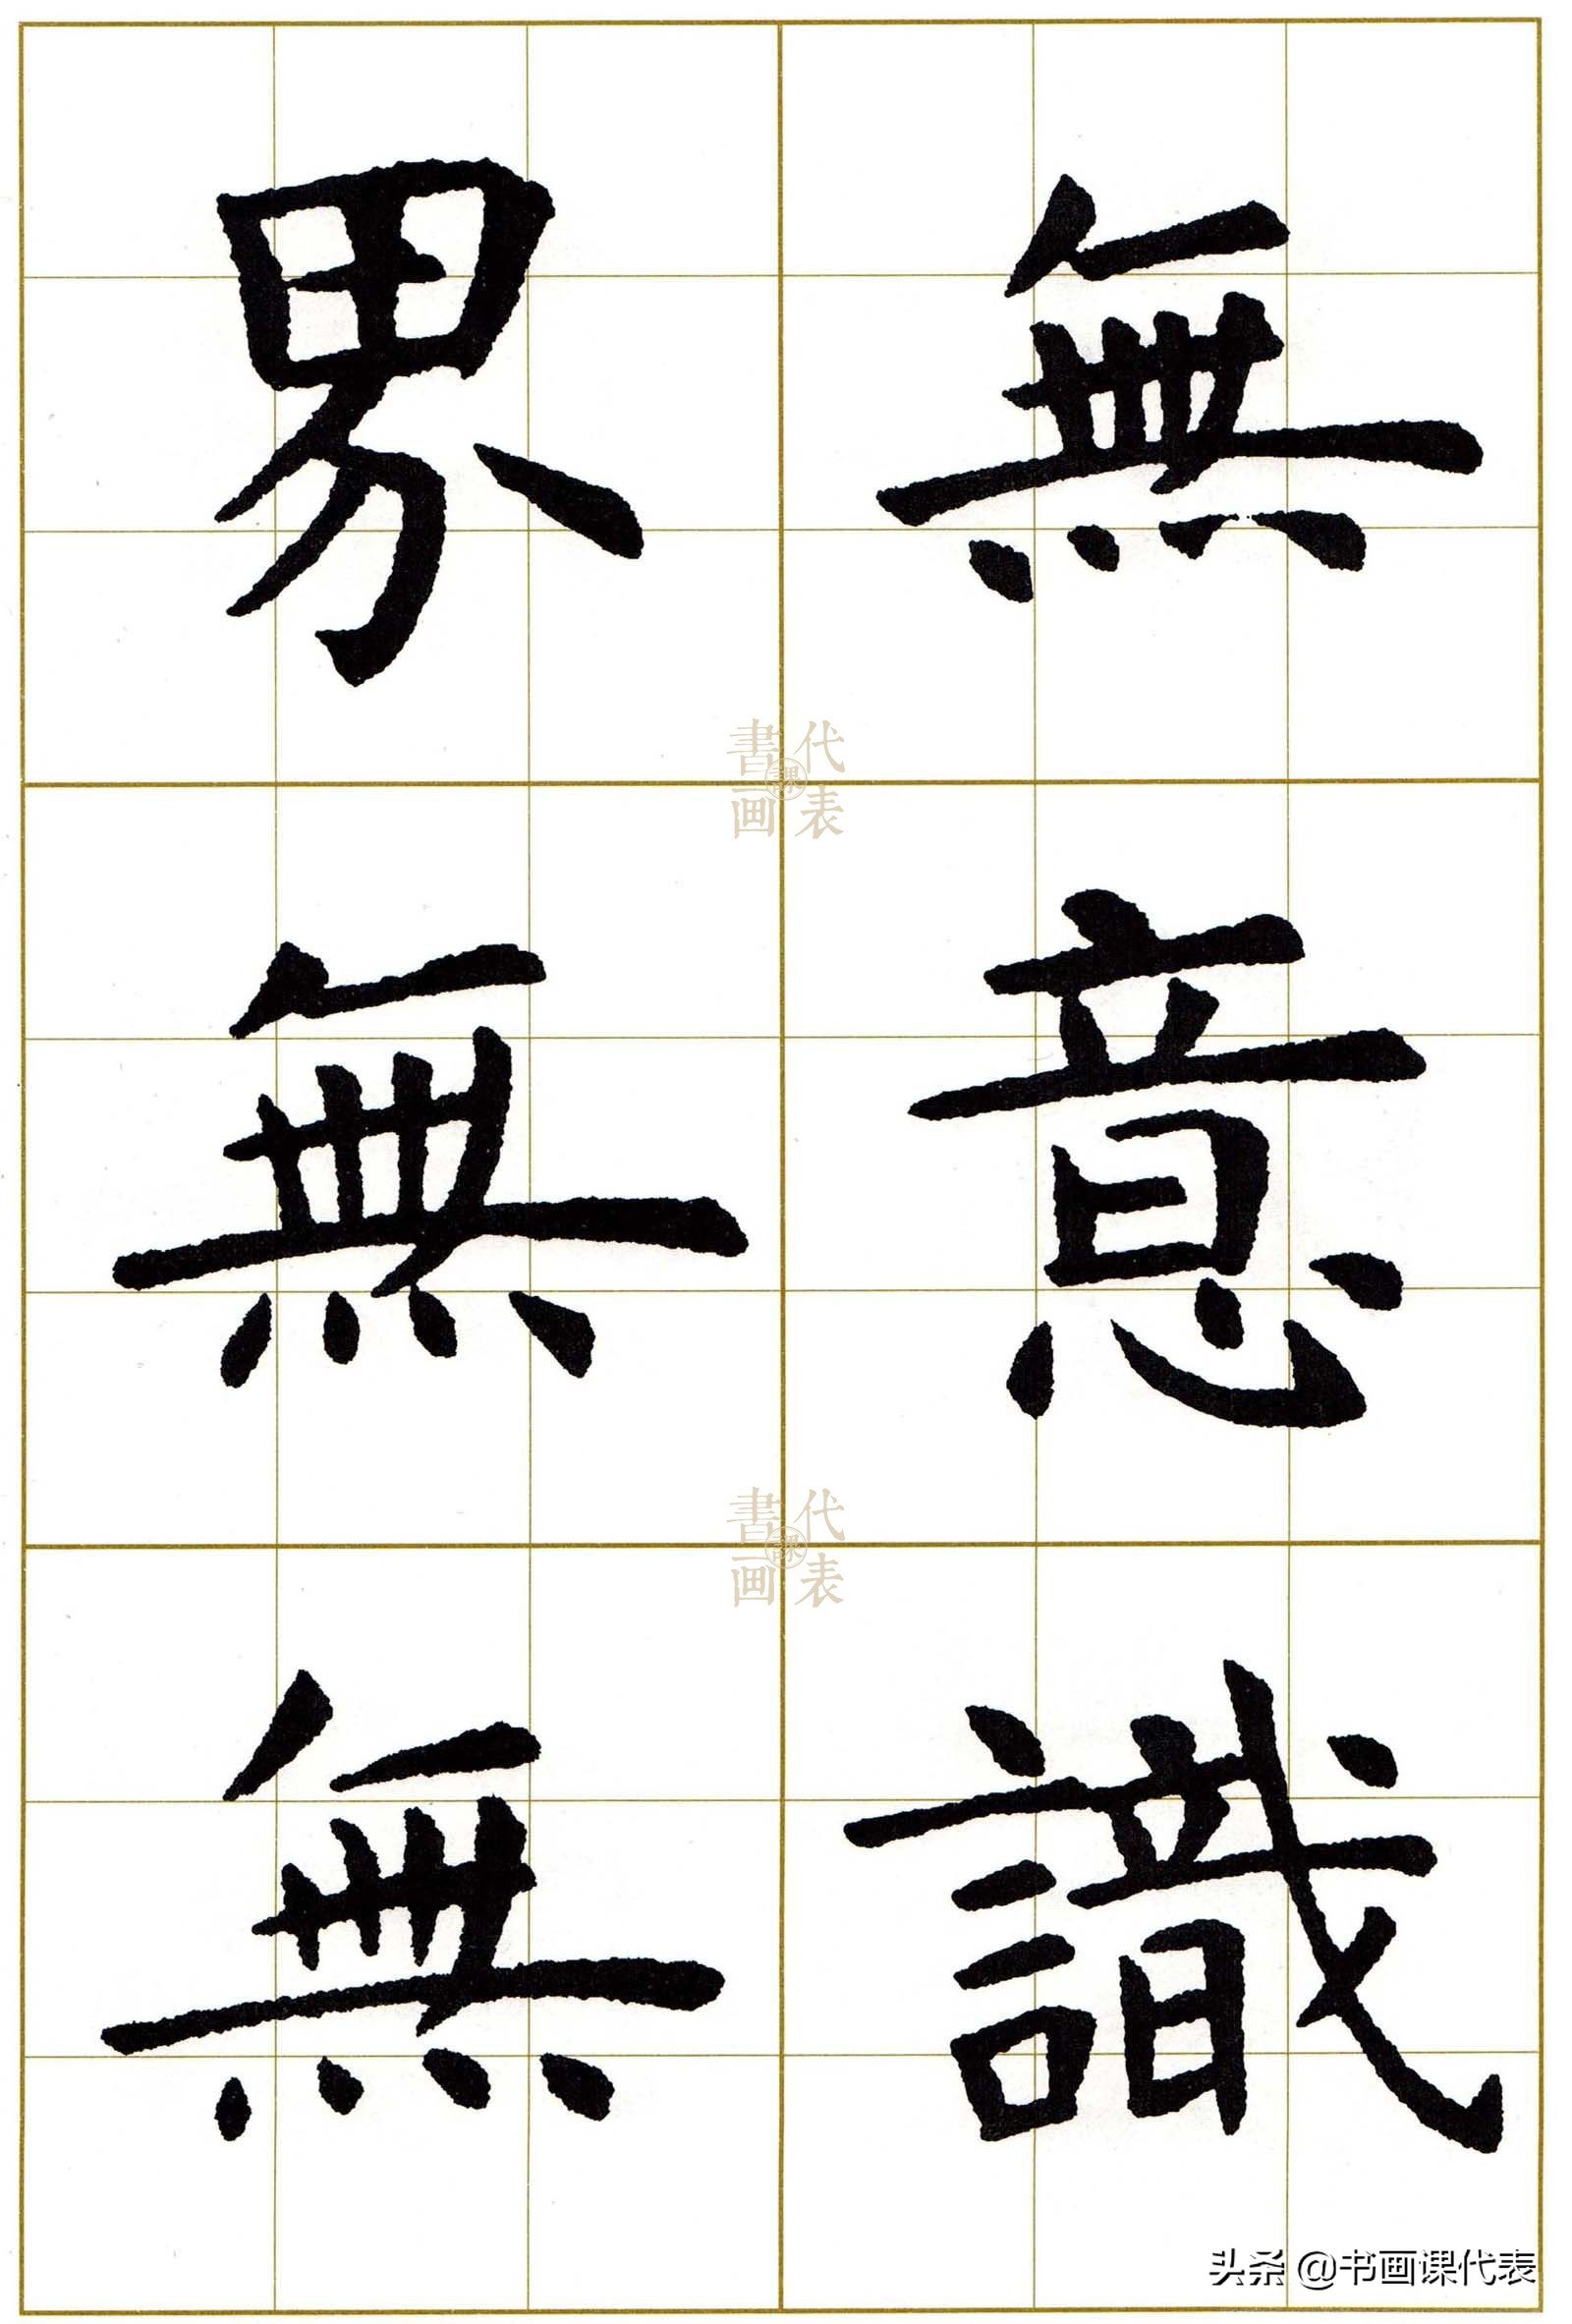 無意識
界無無
代表
書画
課
代表
書画
課
头条 @书画课代表